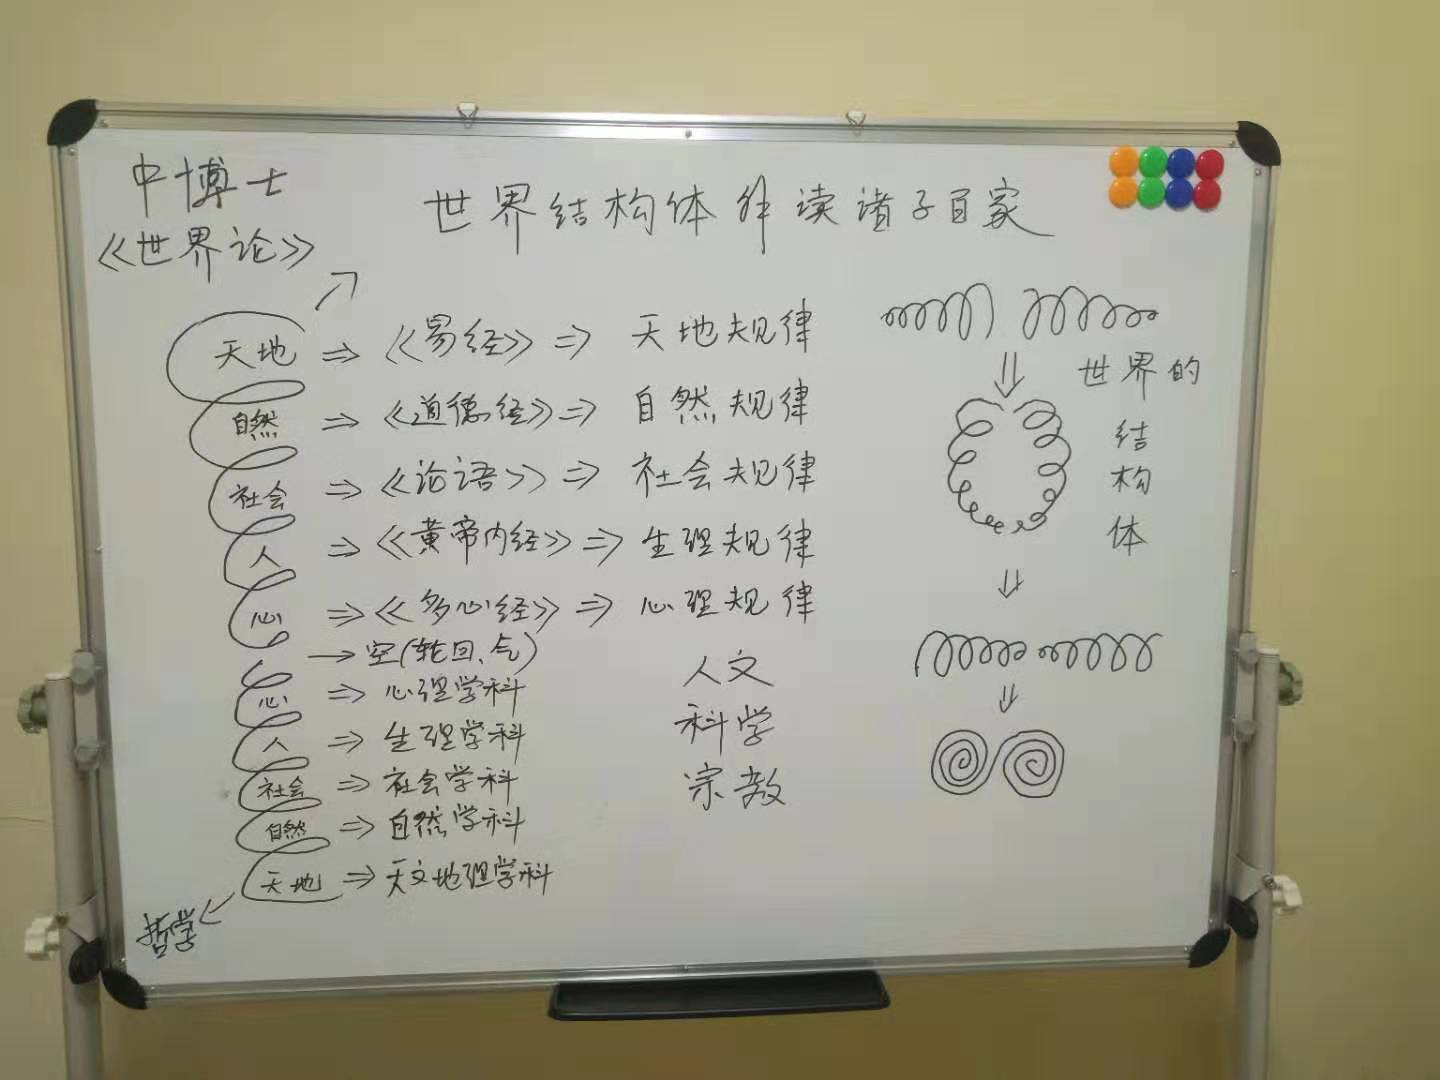 中博士
《世界论》
世界结构体解读诸子百家
天地 ⇒ 《易经》 ⇒ 天地规律
自然 ⇒ 《道德经》 ⇒ 自然规律
社会 ⇒ 《论语》 ⇒ 社会规律
人 ⇒ 《黄帝内经》 ⇒ 生理规律
心 ⇒ 《多心经》 ⇒ 心理规律
→ 空(轮回、气)
心 ⇒ 心理学科
人 ⇒ 生理学科
社会 ⇒ 社会学科
自然 ⇒ 自然学科
天地 ⇒ 天文地理学科
哲学
人文
科学
宗教
世界的
结
构
体